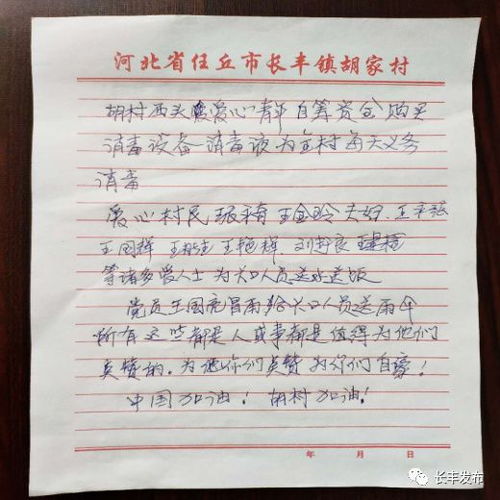 河北省任丘市长丰镇胡家村
胡村西头爱心青年自筹资金购买
消毒设备消毒液为全村每天义务
消毒
爱心村民张 王金玲夫妇
王国辉 王艳辉 刘 良
等诸多爱人士为关口人员送水送饭
党员王国 冒雨给关口人员送雨伞
所有这些都是人或事都是值得为他们
点赞的。为他你们点赞为你们自豪!
中国加油! 胡村加油!
年 月 日
长丰发布